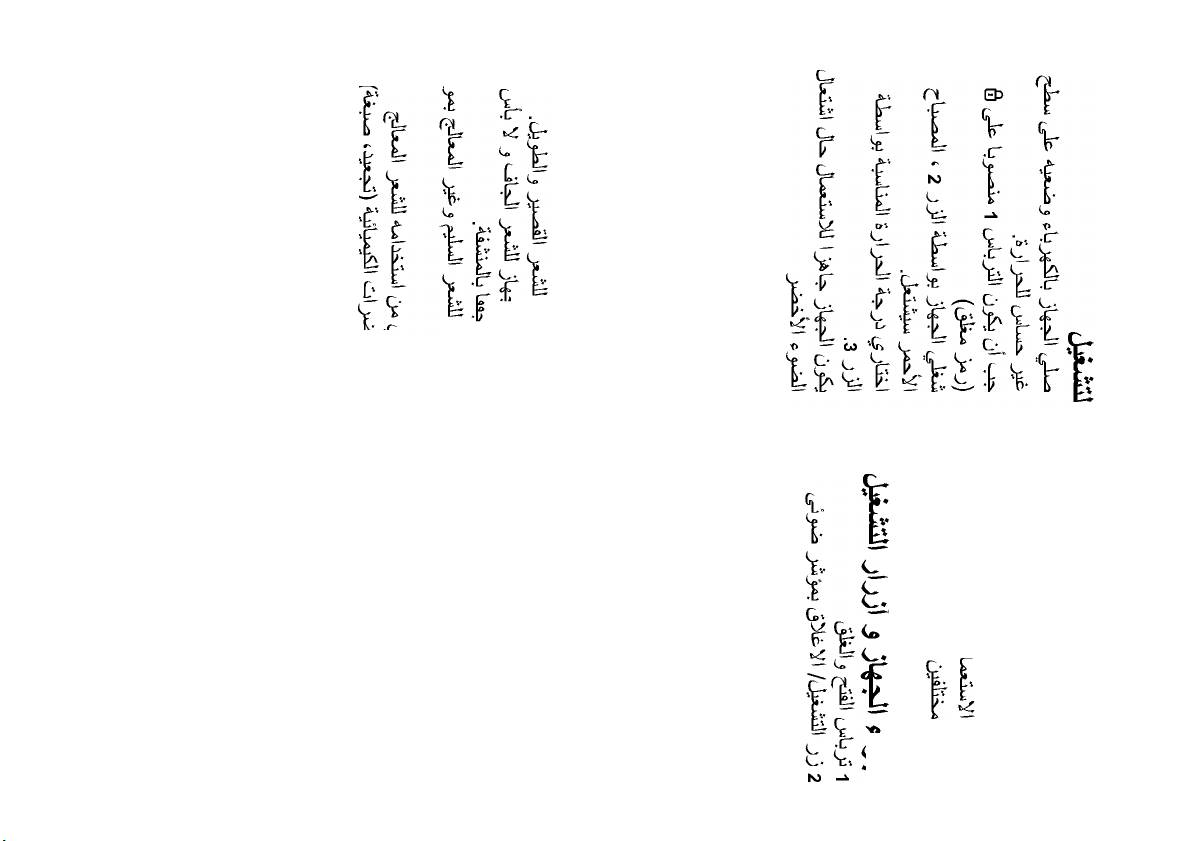 الاستعما
مختلفين
ء الجهاز و أزرار التشغيل
1 ترباس الفتح والغلق
2 زر التشغيل/ الاغلاق بمؤشر ضوئي
لتشغيل
صلي الجهاز بالكهرباء وضعيه على سطح
غير حساس للحرارة.
جب أن يكون الترباس 1 منصوبا على
(رمز مغلق)
شغلي الجهاز بواسطة الزر 2 ، المصباح
الأحمر سيشتعل.
اختاري درجة الحرارة المناسبة بواسطة
الزر 3.
يكون الجهاز جاهزا للاستعمال حال اشتعال
الضوء الأخضر
للشعر القصير والطويل.
جهاز للشعر الجاف و لا بأس
جففا بالمنشفة.
للشعر السليم و غير المعالج بمو
من استخدامه للشعر المعالج
ضرات الكيميائية (تجعيد، صبغة)